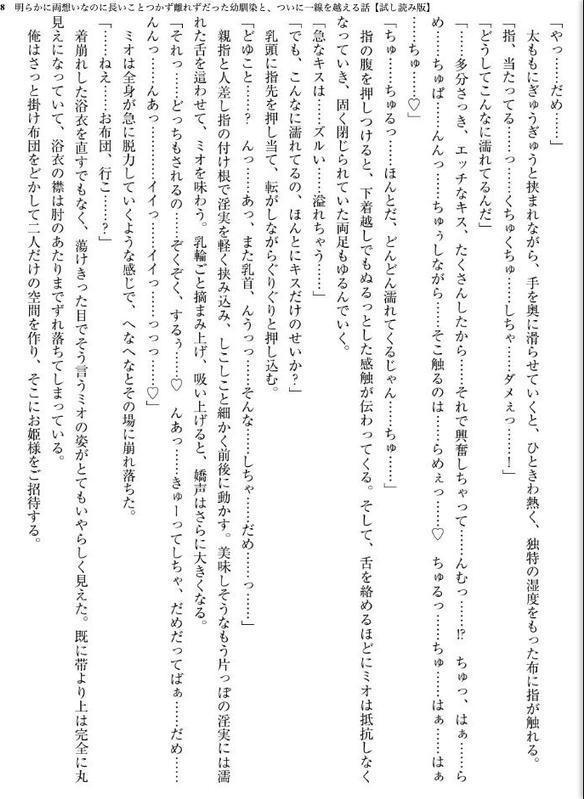 8 明らかに両想いなのに長いことつかず離れずだった幼馴染と、ついに一線を越える話【試し読み版】
「やっ……だめ……」
太ももにぎゅうぎゅうと挟まれながら、手を奥に滑らせていくと、ひときわ熱く、独特の湿度をもった布に指が触れる。
「指、当たってる……っ……くちゅくちゅ……しちゃ……ダメぇっ……！」
「どうしてこんなに濡れてるんだ」
「……多分さっき、エッチなキス、たくさんしたから……それで興奮しちゃって……んむっ……!?　ちゅっ、はぁ……ら
め……ちゅぱ……んんっ……ちゅぅしながら……そこ触るのは……らめぇっ……♡　ちゅるっ……ちゅ……はぁ……はぁ
……ちゅ……♡」
「ちゅ……ちゅるっ……ほんとだ、どんどん濡れてくるじゃん……ちゅ……」
指の腹を押しつけると、下着越しでもぬるっとした感触が伝わってくる。そして、舌を絡めるほどにミオは抵抗しなく
なっていき、固く閉じられていた両足もゆるんでいく。
「急なキスは……ズルい……溢れちゃう……」
「でも、こんなに濡れてるの、ほんとにキスだけのせいか？」
乳頭に指先を押し当て、転がしながらぐりぐりと押し込む。
「どゆこと……？　んっ……あっ、また乳首、んうっっ……そんな……しちゃ……だめ……っ……」
親指と人差し指の付け根で淫実を軽く挟み込み、しこしこと細かく前後に動かす。美味しそうなもう片っぽの淫実には濡
れた舌を這わせて、ミオを味わう。乳輪ごと摘まみ上げ、吸い上げると、嬌声はさらに大きくなる。
「それっ……どっちもされるの……ぞくぞく、するぅ……♡　んあっ……きゅーってしちゃ、だめだってばぁ……だめ……
んんっ……んあっ………イイっ……イイっ……っっっ……♡」
ミオは全身が急に脱力していくような感じで、へなへなとその場に崩れ落ちた。
「……ねえ……お布団、行こ……？」
着崩れした浴衣を直すでもなく、蕩けきった目でそう言うミオの姿がとてもいやらしく見えた。既に帯より上は完全に丸
見えになっていて、浴衣の襟は肘のあたりまでずれ落ちてしまっている。
俺はさっと掛け布団をどかして二人だけの空間を作り、そこにお姫様をご招待する。